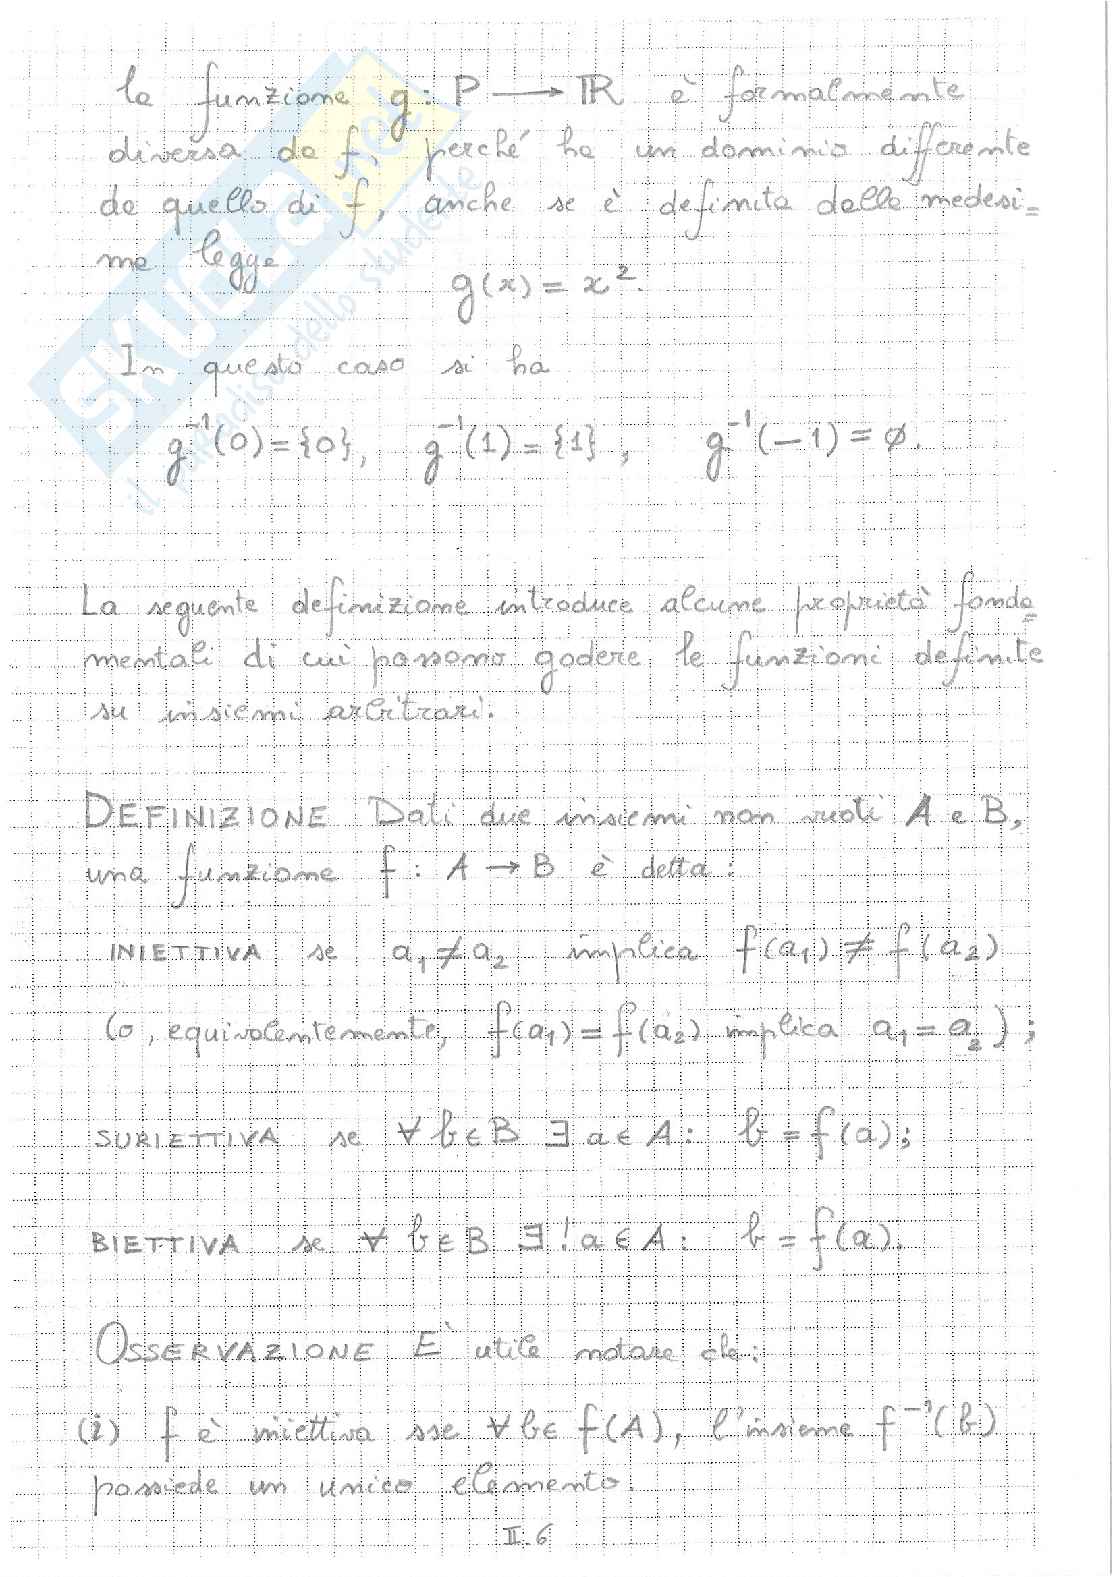 la funzione g: P → ℝ è formalmente
diversa da f, perché ha un dominio differente
da quello di f, anche se è definita dalla medesi=
ma legge
g(x) = x².
In questo caso si ha
g⁻¹(0) = {0}, g⁻¹(1) = {1}, g⁻¹(-1) = ∅.
La seguente definizione introduce alcune proprietà fonda=
mentali di cui possono godere le funzioni definite
su insiemi arbitrari.
DEFINIZIONE Dati due insiemi non vuoti A e B,
una funzione f : A → B è detta:
INIETTIVA se a₁ ≠ a₂ implica f(a₁) ≠ f(a₂)
(o, equivalentemente, f(a₁) = f(a₂) implica a₁ = a₂);
SURIETTIVA se ∀ b ∈ B ∃ a ∈ A: b = f(a);
BIETTIVA se ∀ b ∈ B ∃! a ∈ A: b = f(a).
OSSERVAZIONE È utile notare che:
(i) f è iniettiva sse ∀ b ∈ f(A), l'insieme f⁻¹(b)
possiede un unico elemento.
II.6
SKUOLA.net
il paradiso dello studente